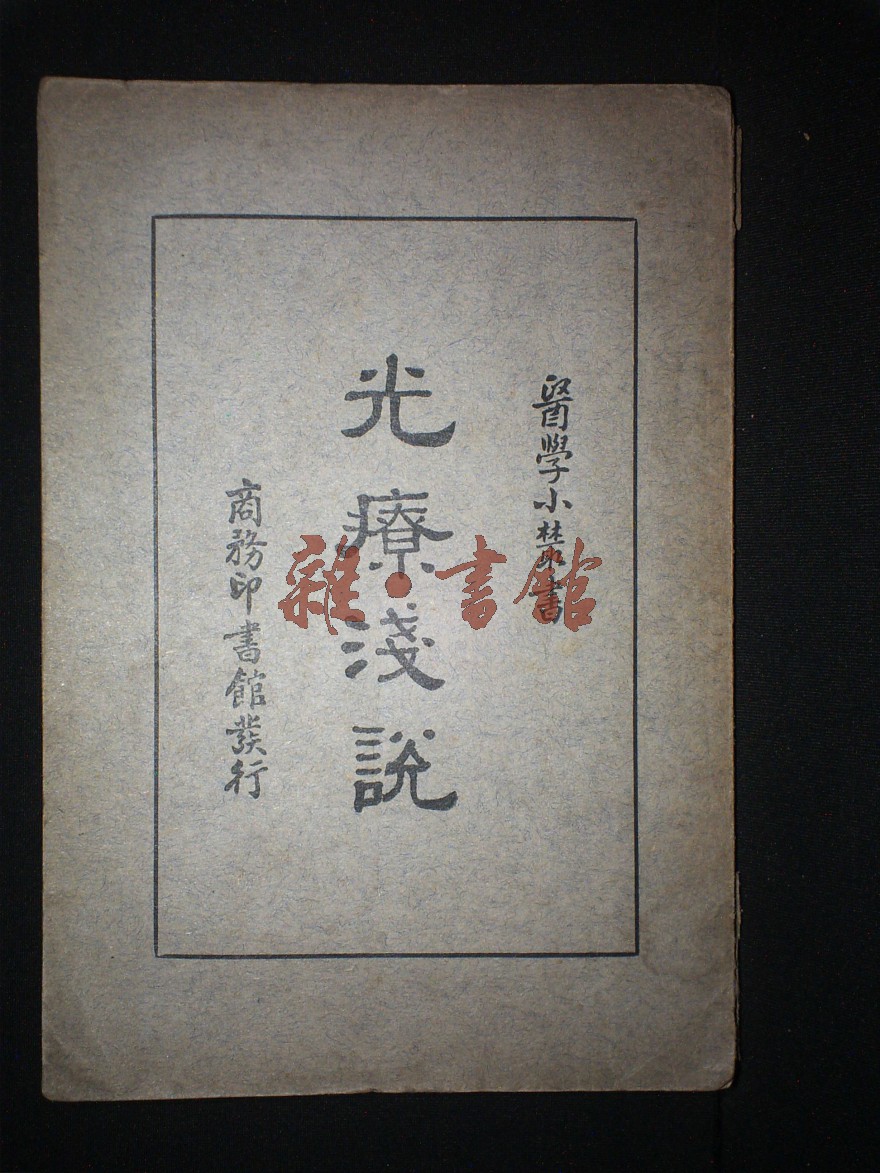 醫學小叢書
光療淺說
商務印書館發行
雜·書館